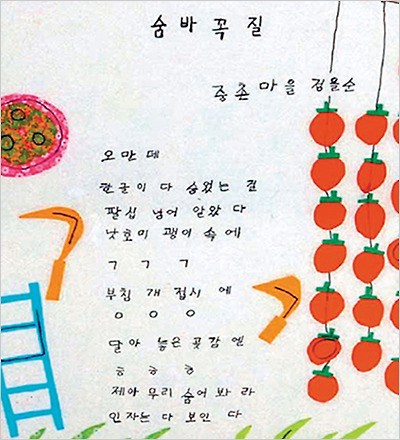 숨 바 꼭 질
중촌 마을 정을순
오만 데
한글이 다 숨었는 걸
팔십 넘어 알았 다
낫호미 괭이 속에
ㄱ ㄱ ㄱ
부침 개 접시 에
ㅇ ㅇ ㅇ
달아 놓은 곶감 엔
ㅎ ㅎ ㅎ
제아 무리 숨어 봐 라
인자는 다 보인 다